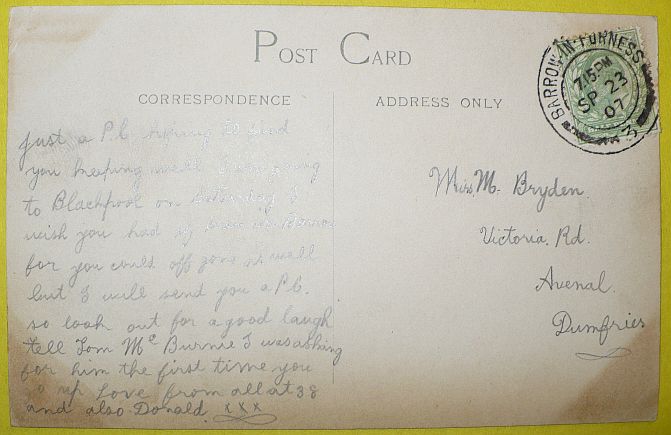 POST CARD
CORRESPONDENCE
ADDRESS ONLY
BARROW-IN-FURNESS
7.15 PM
SP 23
07
3
Just a P.C. hoping to find
you keeping well I am going
to Blackpool on Saturday I
wish you had if in Barrow
for you could off gone as well
but I will send you a P.C.
so look out for a good laugh
tell Tom Mc Burnie I was asking
for him the first time you
up Love from all at 38
and also Donald. xxx
Miss. M. Bryden.
Victoria. Rd.
Avenal.
Dumfries